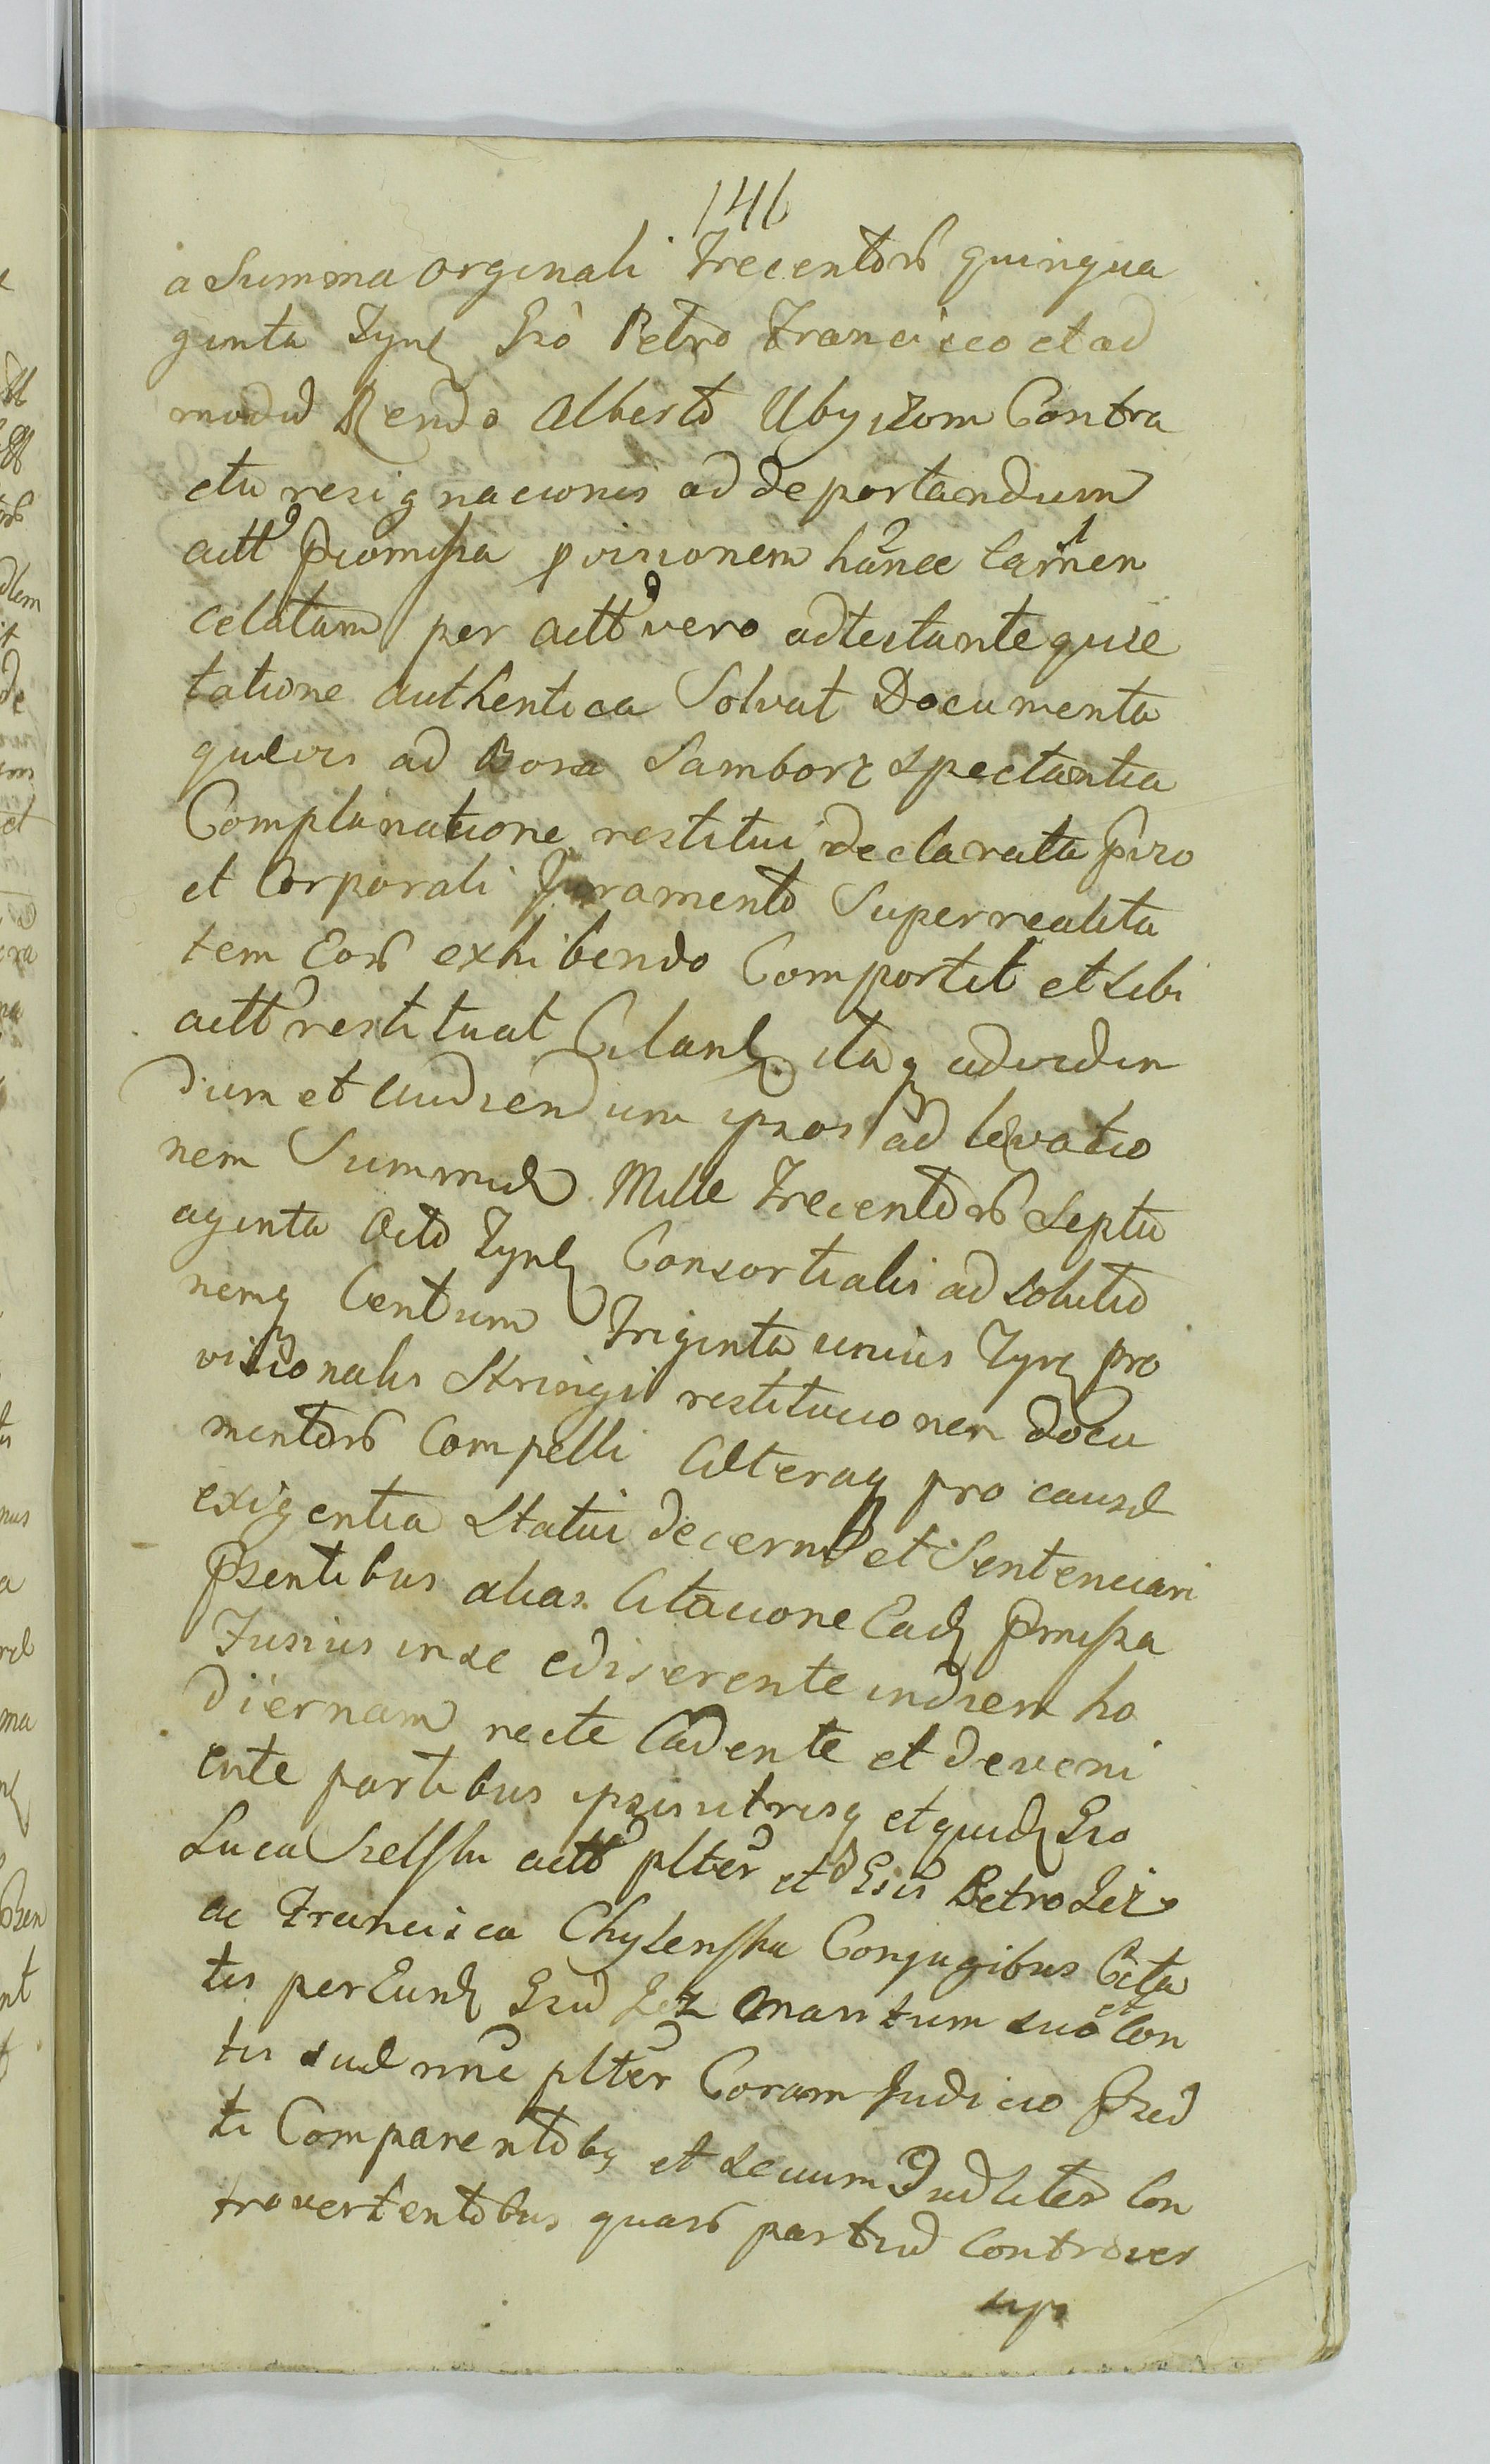 146
a Summa orginali Trecentor quinqua
ginta Tynf Gso Petro Francisco et ad
modu Rendo Alberto Ubyszom Contra
ctu resignacionis ad deportandum
actt promissa pvisionem hance tamen
celatam per actt vero adtestante quie
tatione authentica Solvat Documenta
quevis ad Bona Samborz spectantia
Complanatione restitui declarata
et Corporali Juramento Super realita
tem Eor exhibendo Comportet et sibi
actt restituat Citant itaq advidén
dum et audiendum ipsos ad levatio
nem Summæ Mille Trecentor Septu
aginta Octo Tynf Consortialis ad solutio
nemq Centum Triginta unius Tynf pro
visionalis Stringi restitucionem docu
mentor Compelli Alteraq pro causæ
exigentia Statui decerni et Sentenciari
Psentibus alias Citacione Eadq pmissa
Fusius in se ediserente in diem ho
diernam recte Cadente et deveni
ente partibus ipsis utrisq et quidq Gso
Luca actt plter et Gsis Petro Lez
ac Francisca Chylenska Conjugibus Cita
tis per Eundq Gsu Lez Maritum suo et Con
tis suæ nne plter Coram Judicio Psed
ti Comparentobq et secum Judliter Con
trovertentobus quar partiu Controver